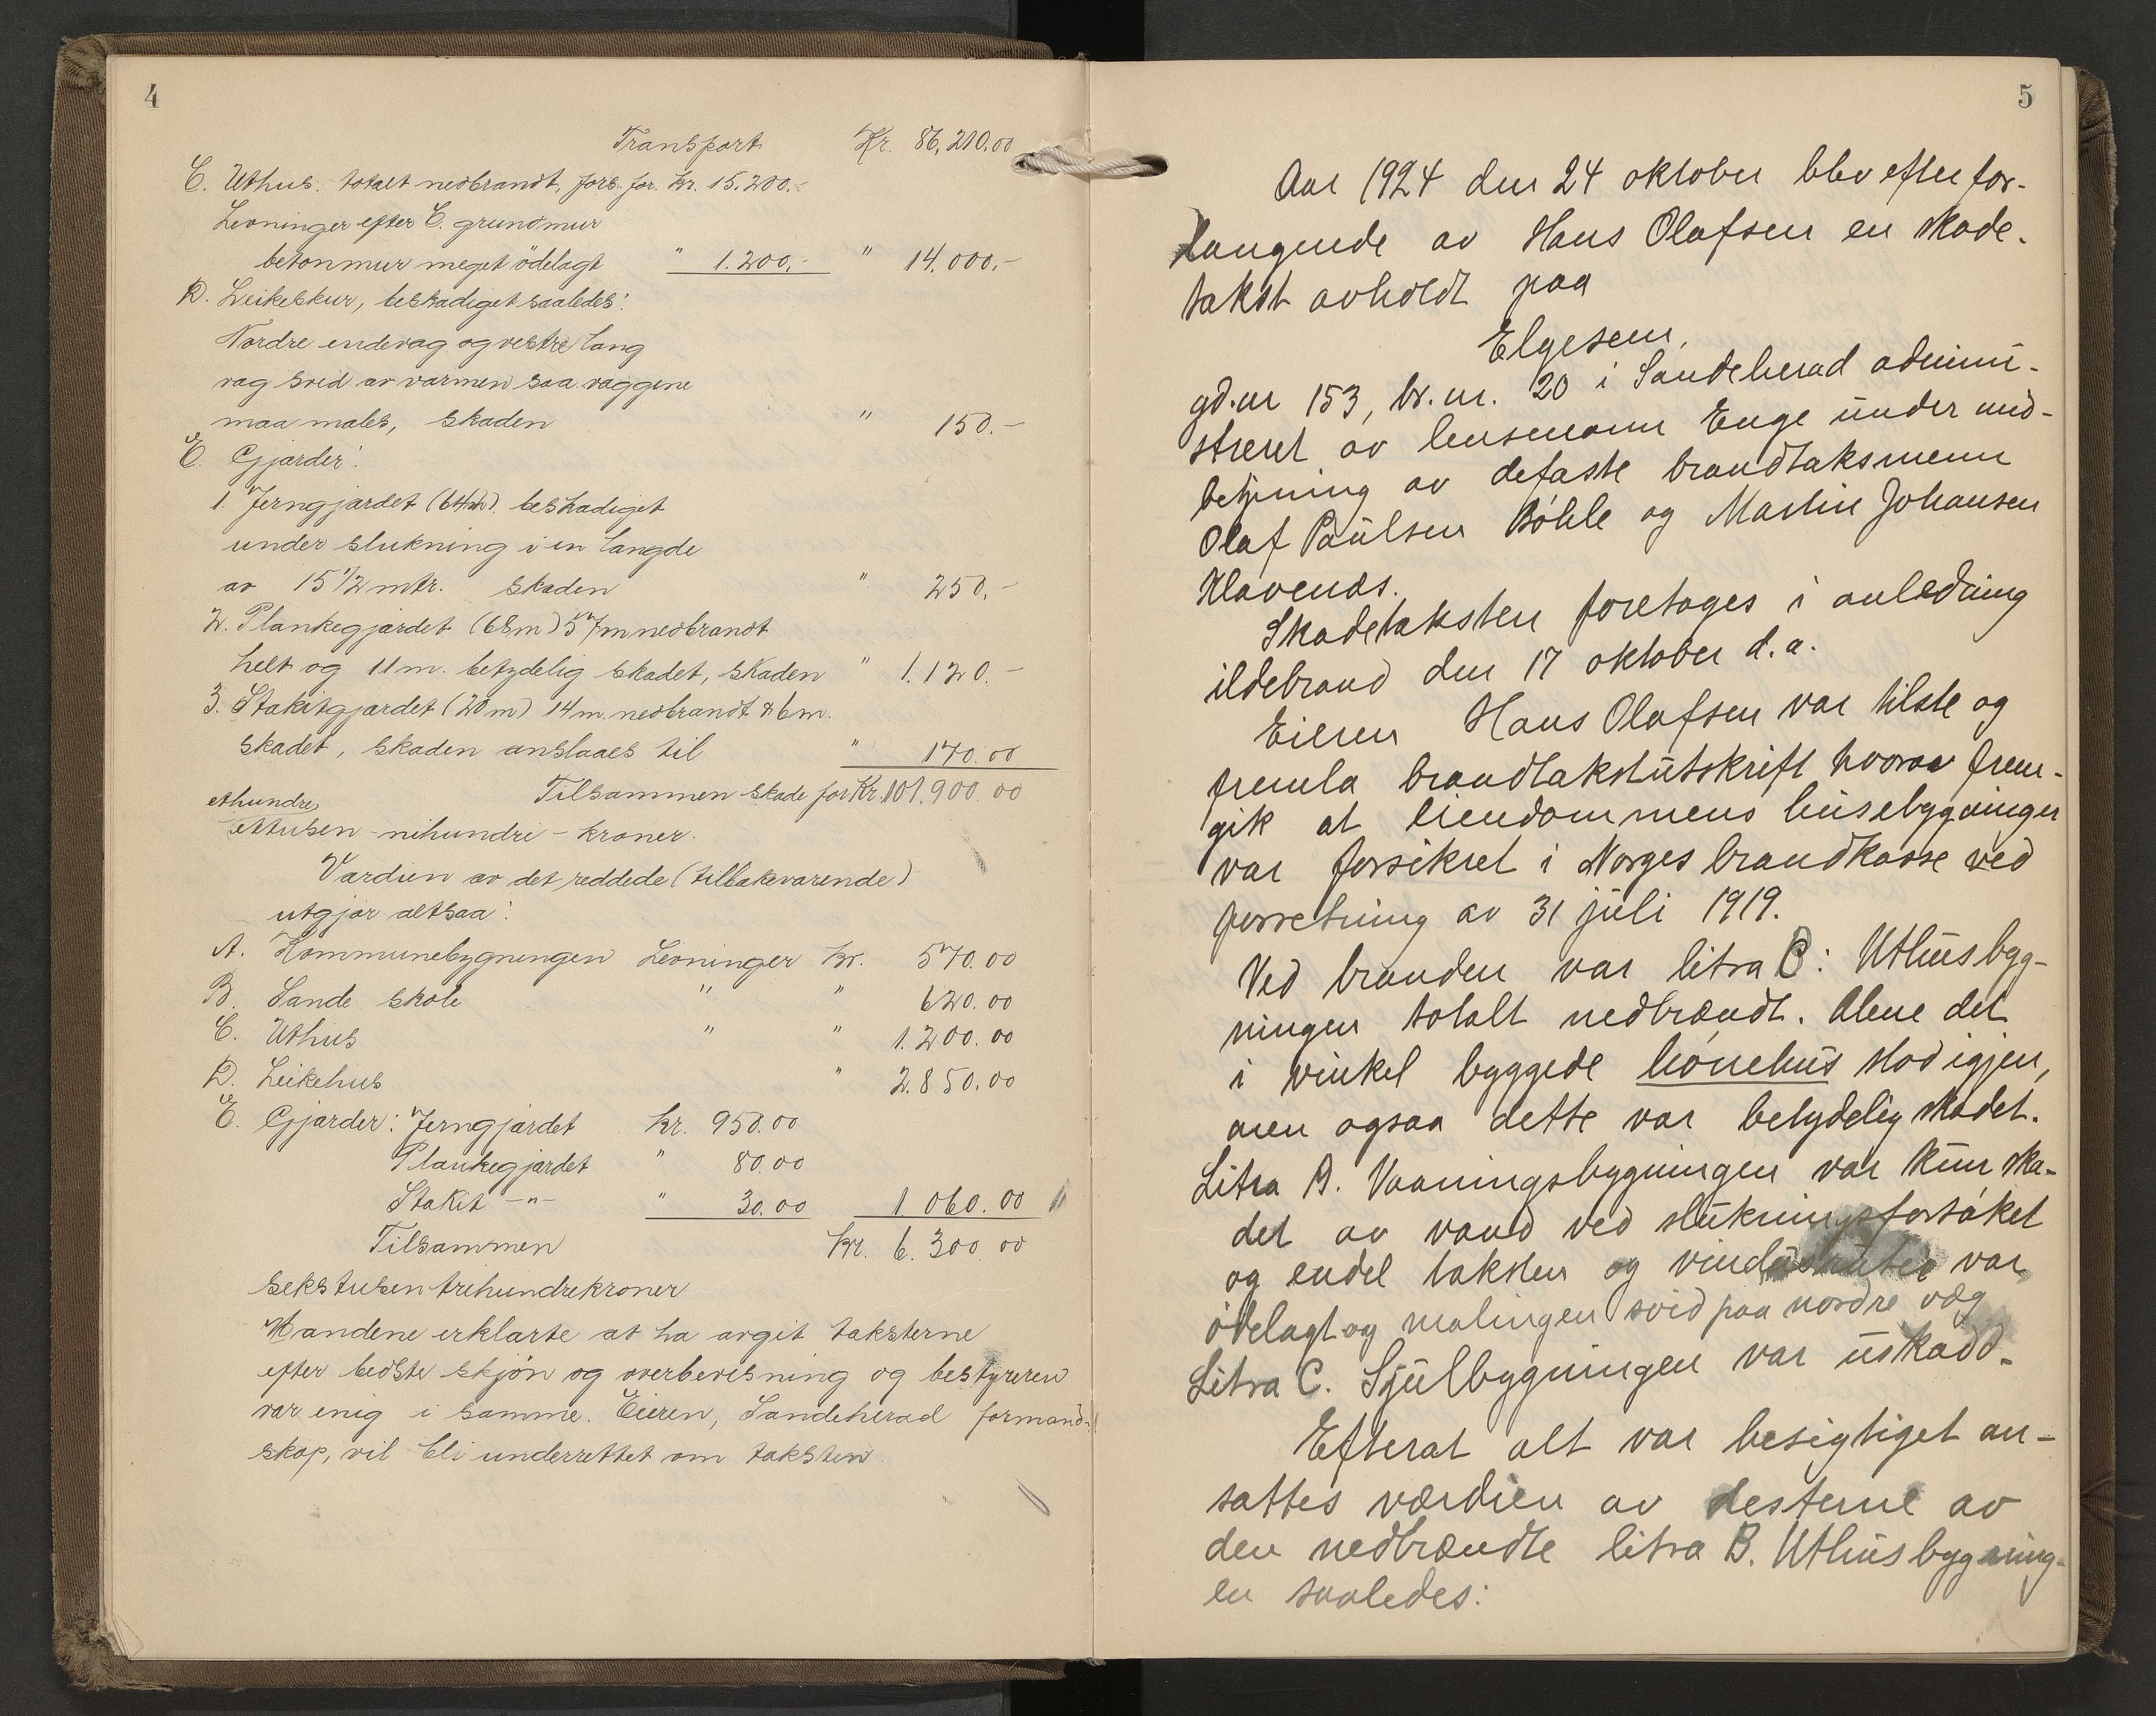 4
Transport Kr. 86,210.00
C. Uthus. totalt nedbrandt, fors. for kr. 15.200.-
Levninger efter C. grundmur
betonmur meget ödelagt " 1.200,- " 14.000,-
D. Leikeskur, beskadiget saaledes:
Nordre endevæg og vestre lang
væg sved av varmen saa væggene
maa males, skaden " 150.-
E. Gjærder:
1. Jerngjærdet (64m). beskadiget
under slukning i en længde
av 15 1/2 mtr. skaden " 250,-
2. Plankegjærdet (68m) 57m nedbrandt
helt og 11 m. betydelig skadet, skaden " 1.120.-
3. Stakitgjærdet (20m) 14m. nedbrandt & 6m.
skadet, skaden anslaaes til " 170.00
Tilsammen skade for Kr. 101.900.00
ethundre
ettusen - nihundre - kroner.
Værdien av det reddede (tilbakeværende)
utgjør altsaa:
A. Kommunebygningen Levninger kr. 570.00
B. Sande skole " " 620.00
C. Uthus " " 1.200.00
D. Leikehus " 2.850.00
E. Gjærder: Jerngjærdet kr. 950.00
Plankegjærdet " 80.00
Stakit -"- " 30.00 1 060.00
Tilsammen kr. 6.300.00
sekstusen trihundrekroner
Mændene erklærte at ha avgit taksterne
efter bedste skjön og overbevisning og bestyreren
var enig i samme. Eieren, Sandeherad formand-
skap, vil bli underrettet om taksten
5
Aar 1924 den 24 oktober blev efter for-
langende av Hans Olafsen en skade-
takst avholdt paa
Elgesem,
gd.nr 153, br.nr. 20 i Sandeherad admini-
streret av lensmann Enge under med-
betjening av defaste brandtaksmenn
Olaf Paulsen Bøhle og Martin Johansen
Klavenæs.
Skadetaksten foretages i anledning
ildebrand den 17 oktober d.a.
Eieren Hans Olafsen var tilste og
fremla brandtakstutskrift hvorav frem-
gik at eiendommens husebygninger
var forsikret i Norges brandkasse ved
forretning av 31 juli 1919.
Ved branden var litra B: Uthusbyg-
ningen totalt nedbrændt. Alene det
i vinkel byggede hönehus stod igjen,
men ogsaa dette var betydelig skadet.
Litra A. Vaaningsbygningen var kun ska-
det av vand ved slukningsforsøket
og endel taksten og vindusruter var
ødelagt og malingen svid paa nordre væg
Litra C. Skjulbygningen var uskadd.
Efterat alt var besigtiget an-
sattes værdien av resterne av
den nedbrændte litra B. Uthusbygning-
en saaledes: